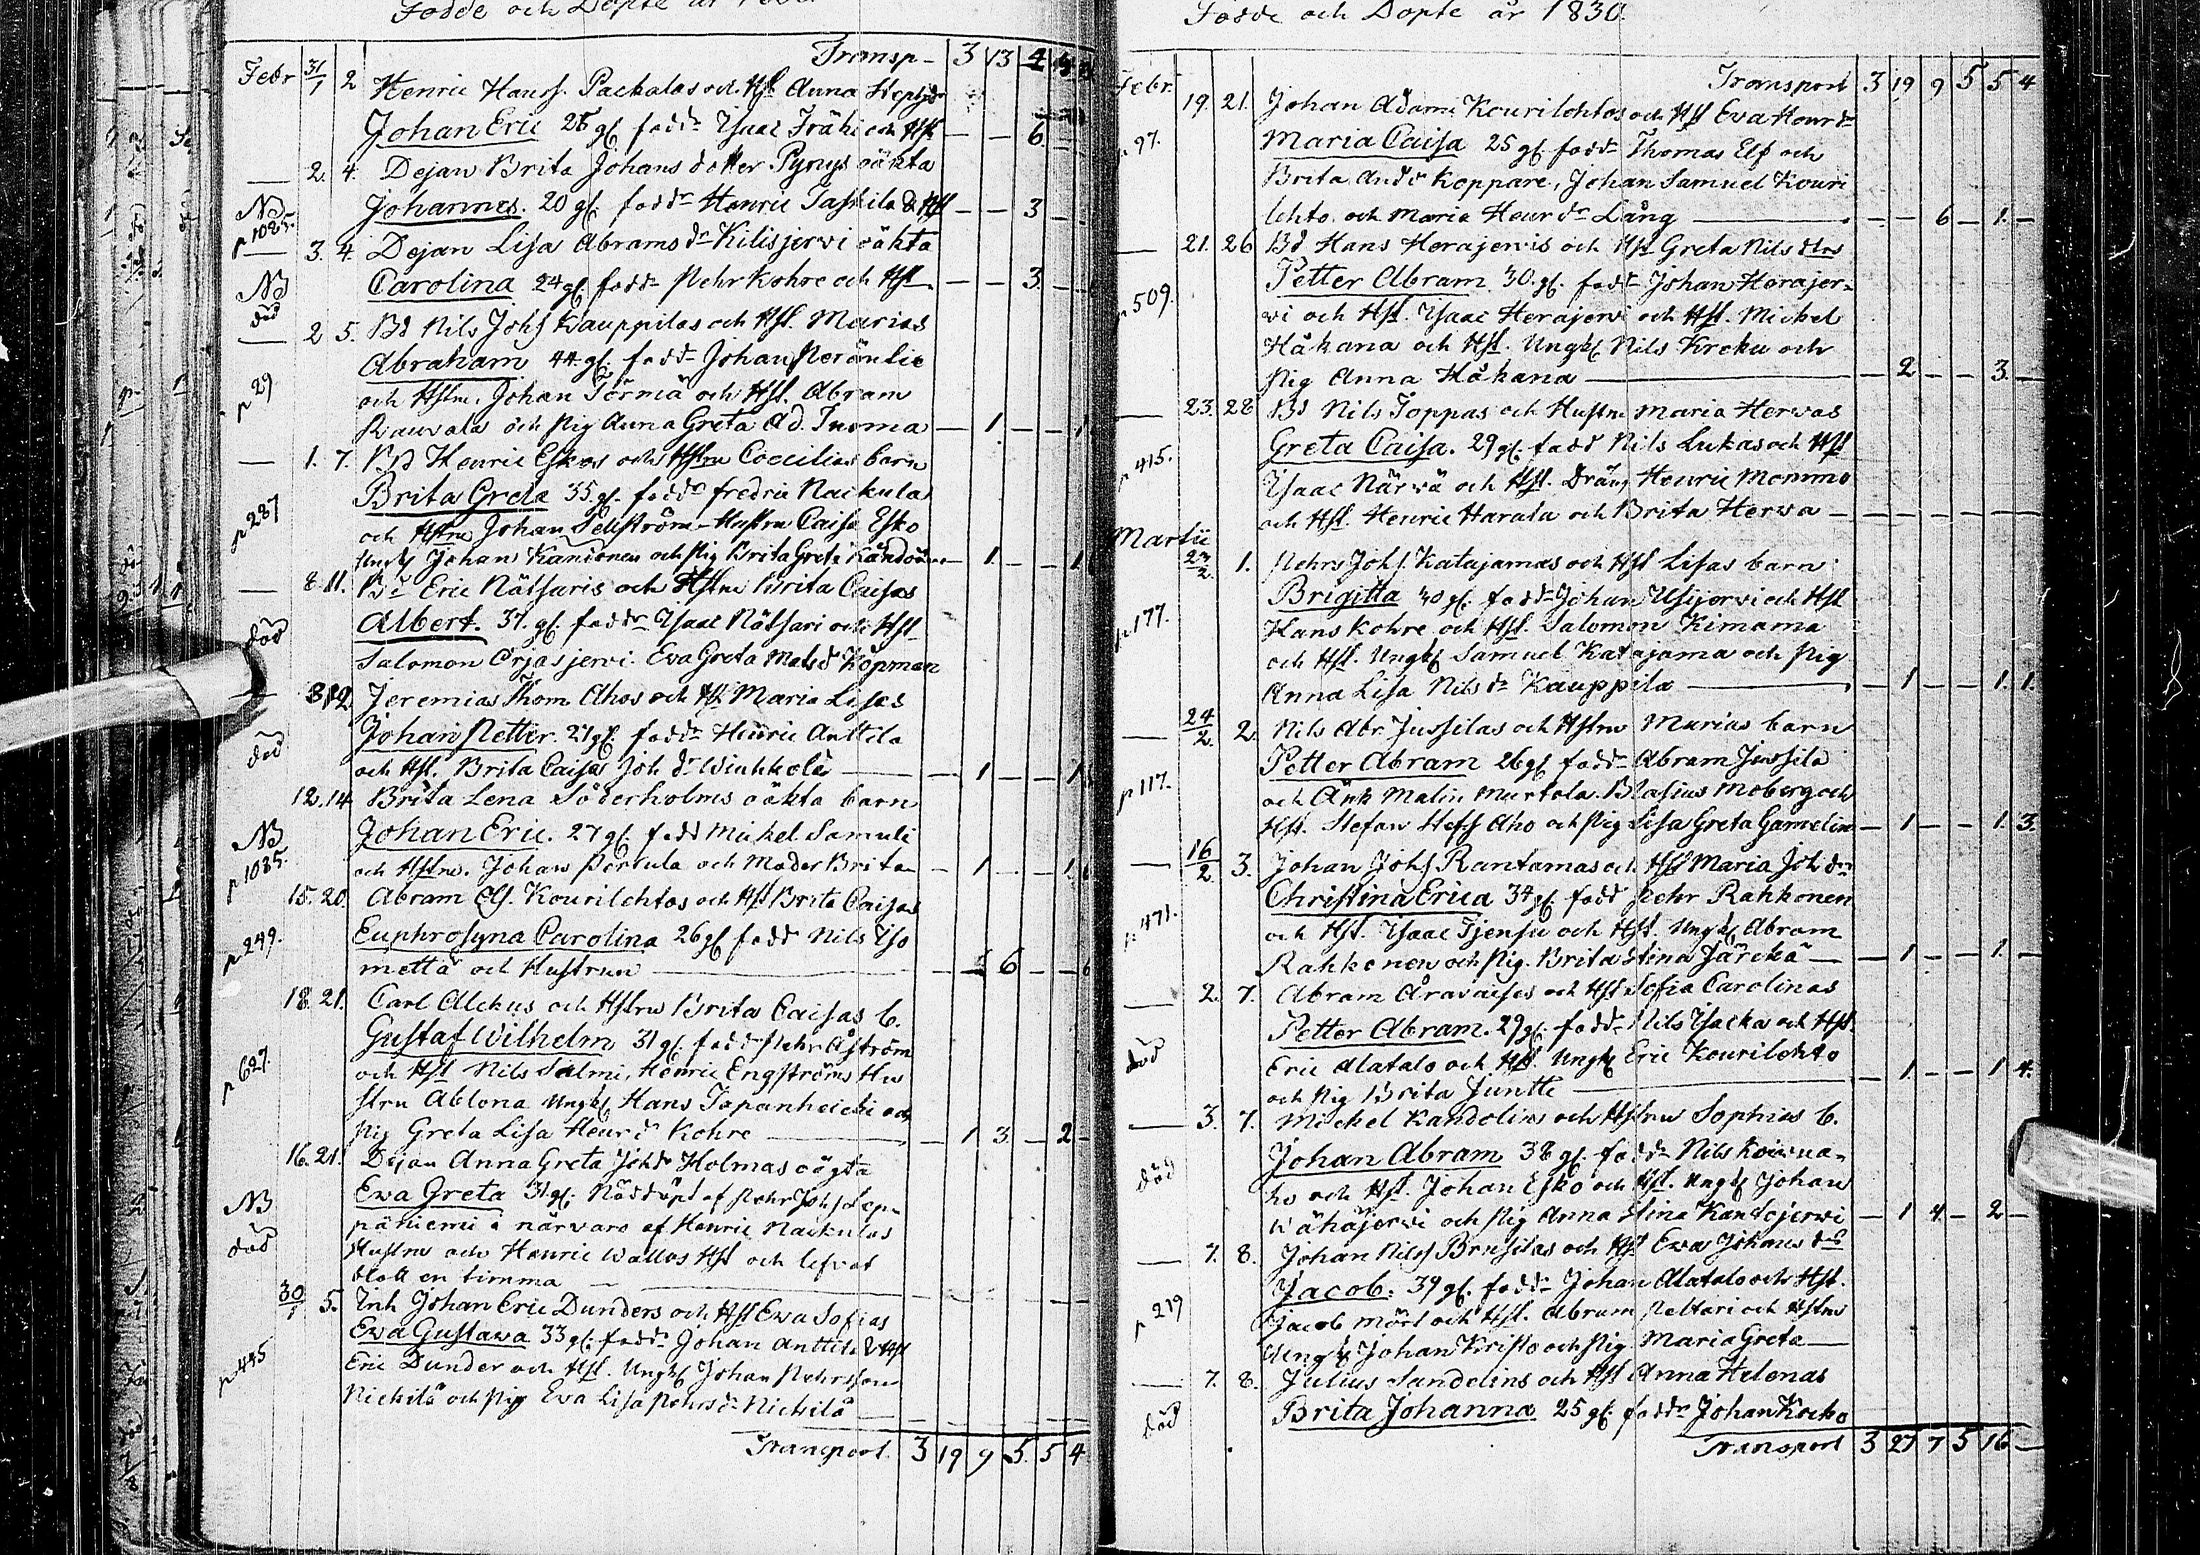 Födde och Döpte år
Transp- 3 13
Febr 31/1 2 Henric Hansſ. Packalas och Hſt Anna Stephsdr
Johan Eric 28 gſ. fadd. Isaac Träki och Hſt — — 6
2. 4. Dejan Brita Johans dotter Pynys oäkta
NB p 1025. Johannes. 20 gſ. fadd. Henric Taſkila & Hſt — — 3
3. 4. Dejan Lisa Abrams dr Kilisjerwi oäkta
NB död Carolina 24 gſ. fadd. Pehr Kohre och Hſt. — — 3
2 5. Bd Nils Johſ Kauppilas och Hſt. Marias
Abraham 44 gſ. fadd. Johan
p 29 och Hſtru. Johan Törmä och Hſt. Abram
Rauvala och Pig Anna Greta Ad. Tuoma — 1 — — 1
1. 7. Henric Eskos och Hſtru Coecilias barn
Brita Greta 35 gſ. fadd. Fredric Nackula
p 287 och Hſtru Johan Sellström Huſtru Caisa Esko
Ungkſ Johan och Pig Brita Greta — 1 — — 1
8. 11. Bd Eric Nätsaris och Hſtru Brita Caisas
Albert. 37. gſ. fadd. Isaac Nätsari och Hſt
död Salomon Orjasjerwi. Eva Greta Matsd Köpman
8 12. Jeremias Thom Ahos och Hſt Maria Lisas
Johan Petter. 27 gſ. fadd. Henric Anttila
död och Hſt. Brita Caisa Joh dr — 1 — — 1
12. 14 Brita Lena Söderholms oäkta barn
NB Johan Eric. 27 gſ. fadd Mickel Samuli
p 1035. och Hſtru. Johan Portula och Moder Brita — 1 — — 1
15. 20. Abram Kourilehtos och Hſt Brita Caisas
p 249. Euphrosyna Carolina 26 gſ fadd Nils Iso
metta och Huſtrun — 6 — —
18. 21. Carl Alckus och Hſtru Brita Caisas b.
Guſtaf Wilhelm 31 gſ. fadd Pehr Åström
p 627. och Hſt Nils Salmi, Henric Engströms Hu
stru Ablona Ungkſ Hans Tapanheicki och
Pig Greta Lisa Henr dr Kohre — 1 3 — 2 —
16. 21. Dejan Anna Greta Johdr Holmas oägta
NB Ewa Greta 31 gſ. Nöddöpt af Pehr Johſ Lep-
död päniemi i närvaro af Henric Nackulas
Huſtru och Henric Wallos Hſt och lefvat
blott en timma
30/1 5. Inh Johan Eric Dunders och Hſt Ewa Sofias
Ewa Guſtawa 33 gſ. fadd. Johan Anttila & Hſt
p 445 Eric Dunder och Hſt. Ungkſ Johan Pehrsson
Nickilä och Pig Eva Lisa Pehrsdr Nickilä
Transport. 3 19 9 5 5 4
Födde och Döpte år 1830.
Transport 3 19 9 5 5 4
Febr. 19. 21. Johan Adams Kourilehtos och Hſt Eva Henr dr
p 97. Maria Caisa 25 gſ. fadd. Thomas Elf och
Brita Andd Koppare, Johan Samuel Kouri
lehto och Maria Henr dr Lång — — 6 — 1. —
21. 26 Bd Hans Herajerwis och Hſt Greta Nils dtrs
Petter Abram 30. gſ. fadd. Johan Herajer-
p 509. wi och Hſt. Isaac Herajerwi och Hſt. Mickel
Håkana och Hſt. Ungkſ Nils Kreku och
Pig Anna Håkana — 2 — — 3. —
23. 28 Bd Nils Joppas och Huſtru Maria Herwas
Greta Caisa. 29 gſ. fadd Nils Lukas och Hſt
p 415. Isaac Närwä och Hſt. Dräng Henric Mommo
och Hſt. Henric Harala och Brita Herwa — — — — — —
Martii 23/2 1. Pehrs Johſ. Katajamas och Hſt Lisas barn
Brigitta 30 gſ. fadd. Johan Usijerwi och Hſt
p 177. Hans Kohre och Hſt. Salomon Kimama
och Hſt. Ungkſ Samuel Katajama och Pig
Anna Lisa Nils dr Kauppila — 1 — — 1. 1.
24/2 2. Nils Abr. Jussilas och Hſtru Marias barn
Petter Abram 26 gſ fadd. Abram Jussila
p 117. och Änk Malin Murtola. Blasius Moberg och
Hſt. Stefan Stefſ Aho och Pig Lisa Greta Gamelin — 1 — — 1. 3.
16/2 3. Johan Johſ Rantamas och Hſt Maria Joh dr
Chriſtina Erica 34 gſ. fadd Pehr Rahkonen
p 471. och Hſt. Isaac och Hſt. Ungkſ Abram
Rahkonen och Pig. Brita Stina — 1 — — 1. —
2. 7. Abram Aravaisas och Hſt Sofia Carolinas
Petter Abram. 29 gſ. fadd. Nils Isacka och Hſt
död Eric Alatalo och Hſt. Ungkſ Eric Kourilehto
och Pig Brita Juntti — 1. — — 1 4.
3. 7. Mickel Kandelins och Hſtru Sophias b.
Johan Abram 38 gſ. fadd. Nils
död ho och Hſt. Johan Esko och Hſt. Ungkſ Johan
Wähäjerwi och Pig Anna Stina Kantojerwi — 1 4. — 2 —
7. 8. Johan Nilsſ Brusilas och Hſt Ewa Johans dtrs
Jacob. 39 gſ. fadd. Johan Alatalo och Hſt.
p 219 Jacob Mört och Hſt. Abram Peltari och Hſtru
Ungkſ Johan Kristo och Pig Maria Greta
7. 8. Julius Sandelins och Hſt Anna Helenas
död Brita Johanna 25 gſ. fadd. Johan Kocko
Transport 3 27 7 5 16 —